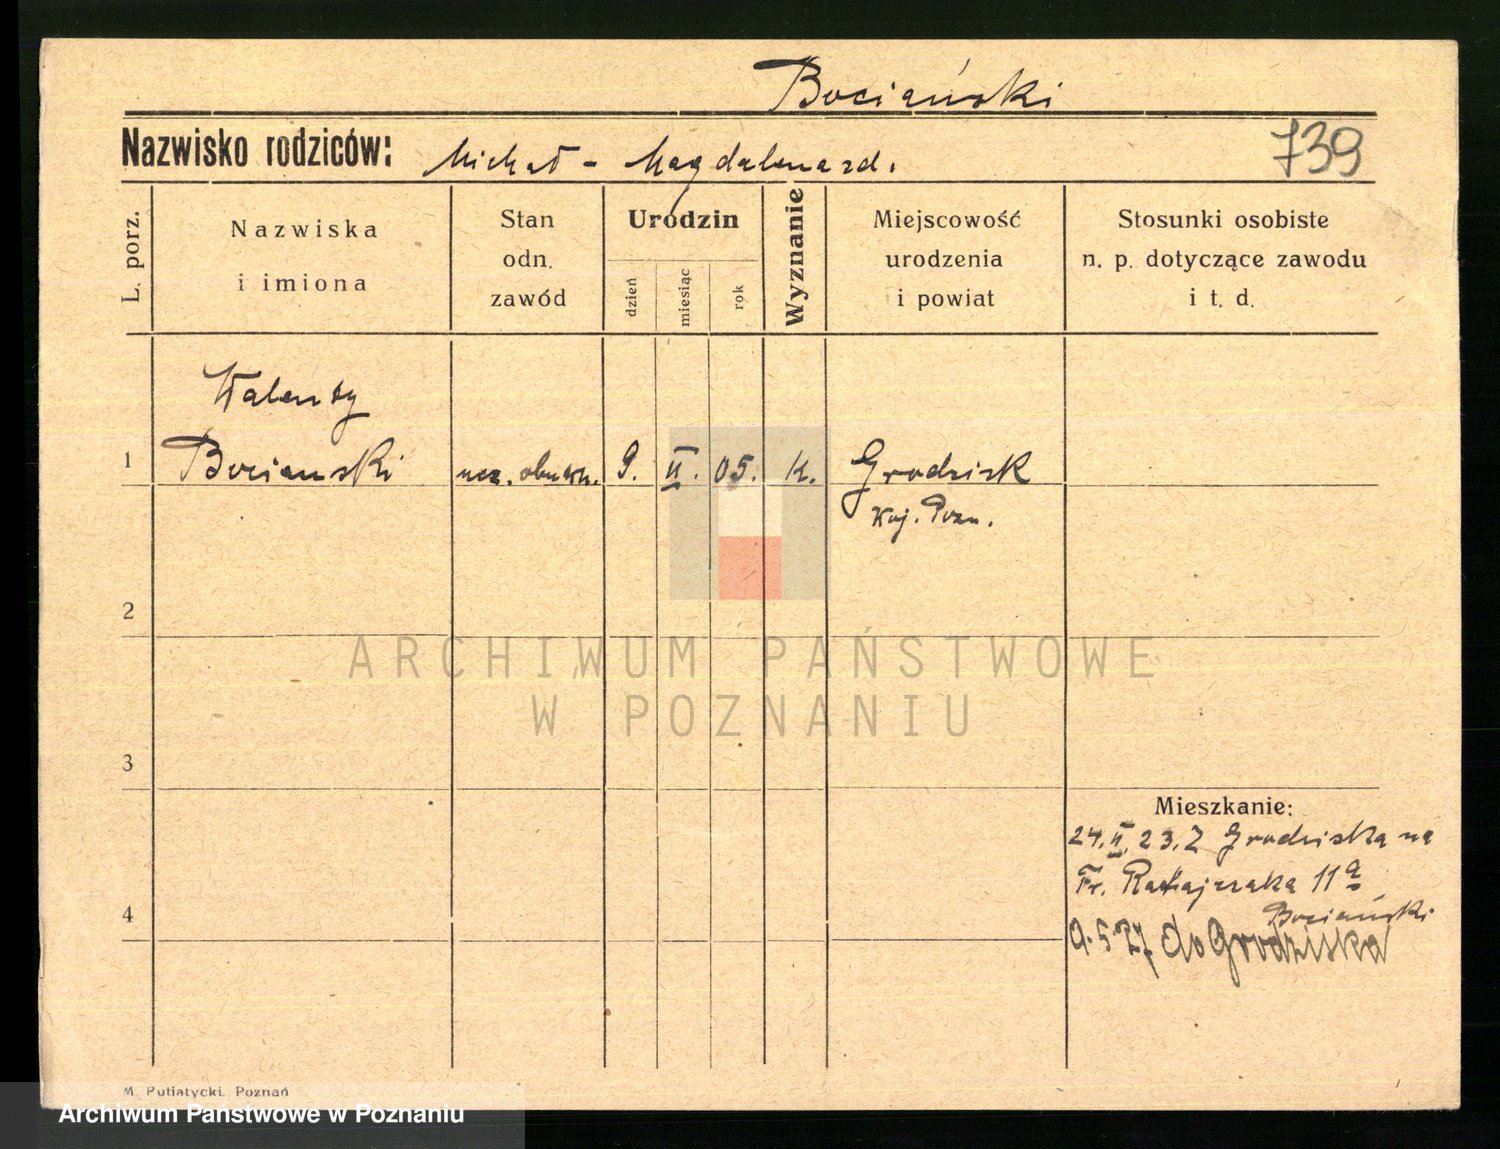 Bociański
Nazwisko rodziców: Michał - Magdalena zd.
739
L. porz.
Nazwiska
i imiona
Stan
odn.
zawód
Urodzin
dzień
miesiąc
rok
Wyznanie
Miejscowość
urodzenia
i powiat
Stosunki osobiste
n. p. dotyczące zawodu
i t. d.
Walenty
1 Bocianski ucz. 9. II. 05. k. Grodzisk
Woj. Pozn.
2
ARCHIWUM PAŃSTWOWE
W POZNANIU
3
Mieszkanie:
24.II.23. Z Grodziska na
Fr. Ratajczaka 11a
Bociański
4
9.5.27 do Grodziska
M. Putiatycki. Poznań
Archiwum Państwowe w Poznaniu